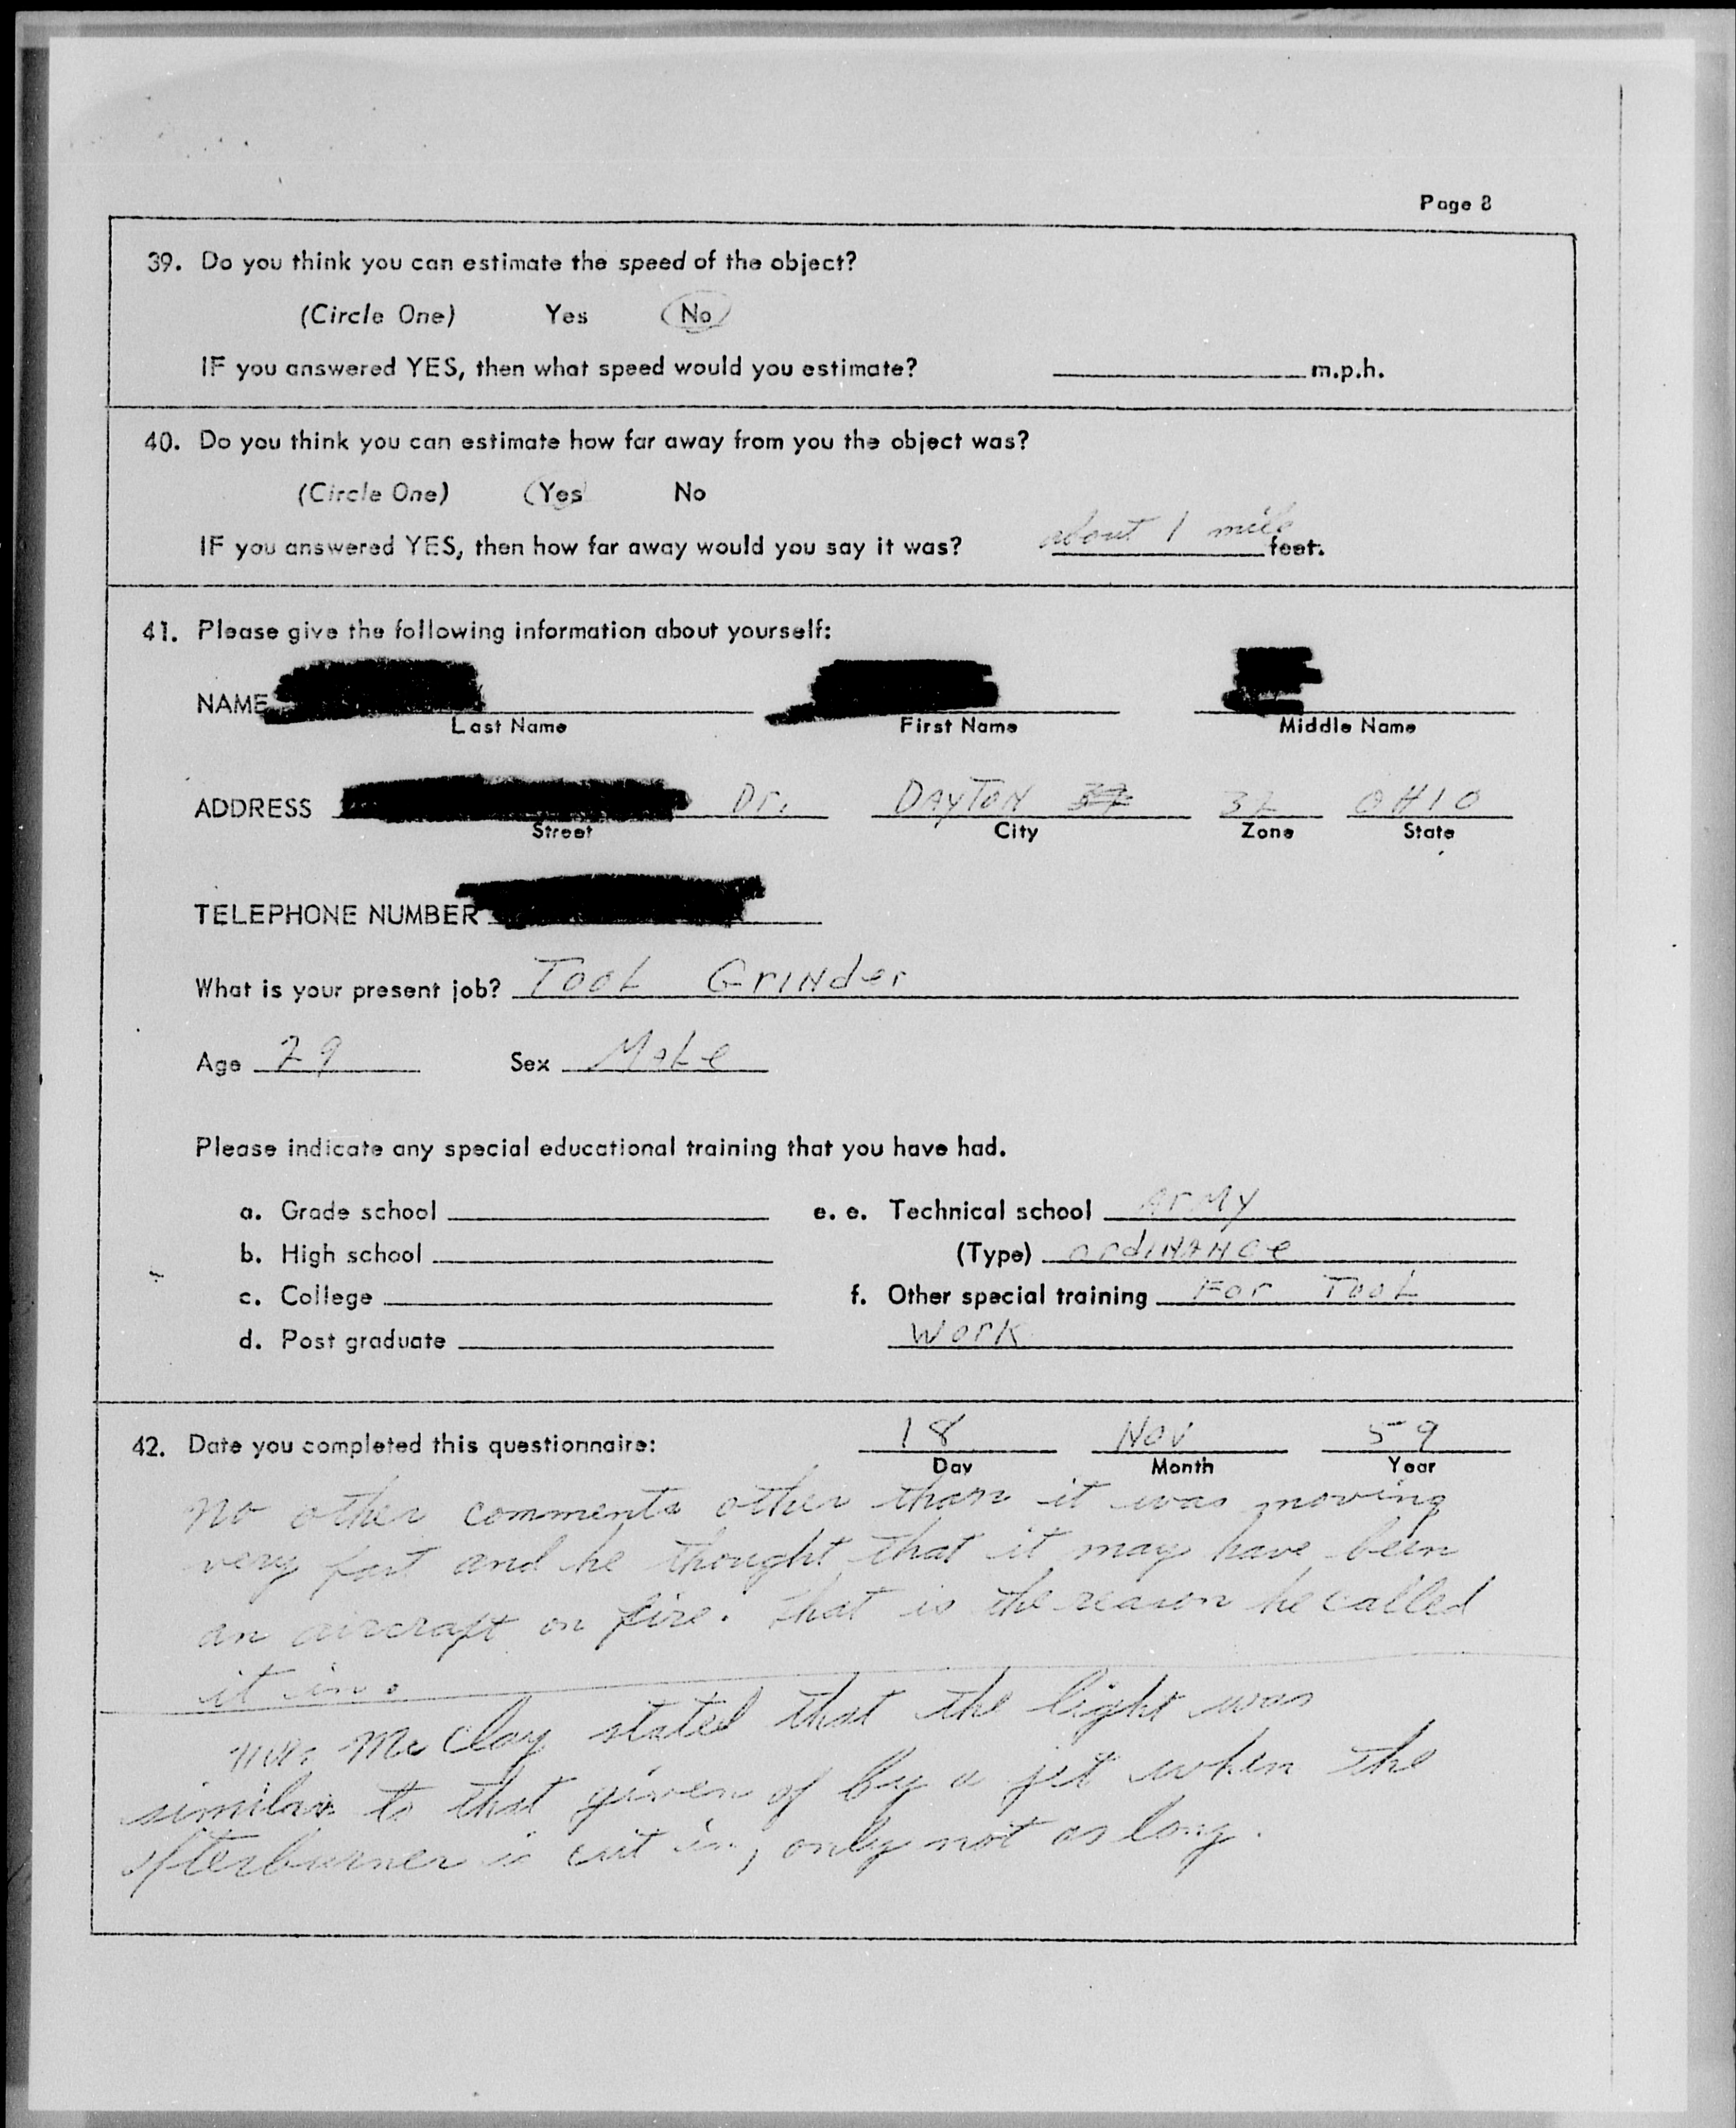 Page 8
39. Do you think you can estimate the speed of the object?
(Circle One) Yes No
IF you answered YES, then what speed would you estimate? m.p.h.
40. Do you think you can estimate how far away from you the object was?
(Circle One) Yes No
IF you answered YES, then how far away would you say it was? about 1 mile feet.
41. Please give the following information about yourself:
NAME
Last Name First Name Middle Name
ADDRESS Dr. DAYTON 32 OHIO
Street City Zone State
TELEPHONE NUMBER
What is your present job? TooL GrINder
Age 29 Sex MaLe
Please indicate any special educational training that you have had.
a. Grade school e. e. Technical school ArMy
b. High school (Type) ordINANce
c. College f. Other special training For TooL
d. Post graduate Work
42. Date you completed this questionnaire: 18 Nov 59
Day Month Year
No other comments other than it was moving
very fast and he thought that it may have been
an aircraft on fire. That is the reason he called
it in.
Mc Clay stated that the light was
similar to that given of by a jet when the
afterburner is cut in, only not as long.